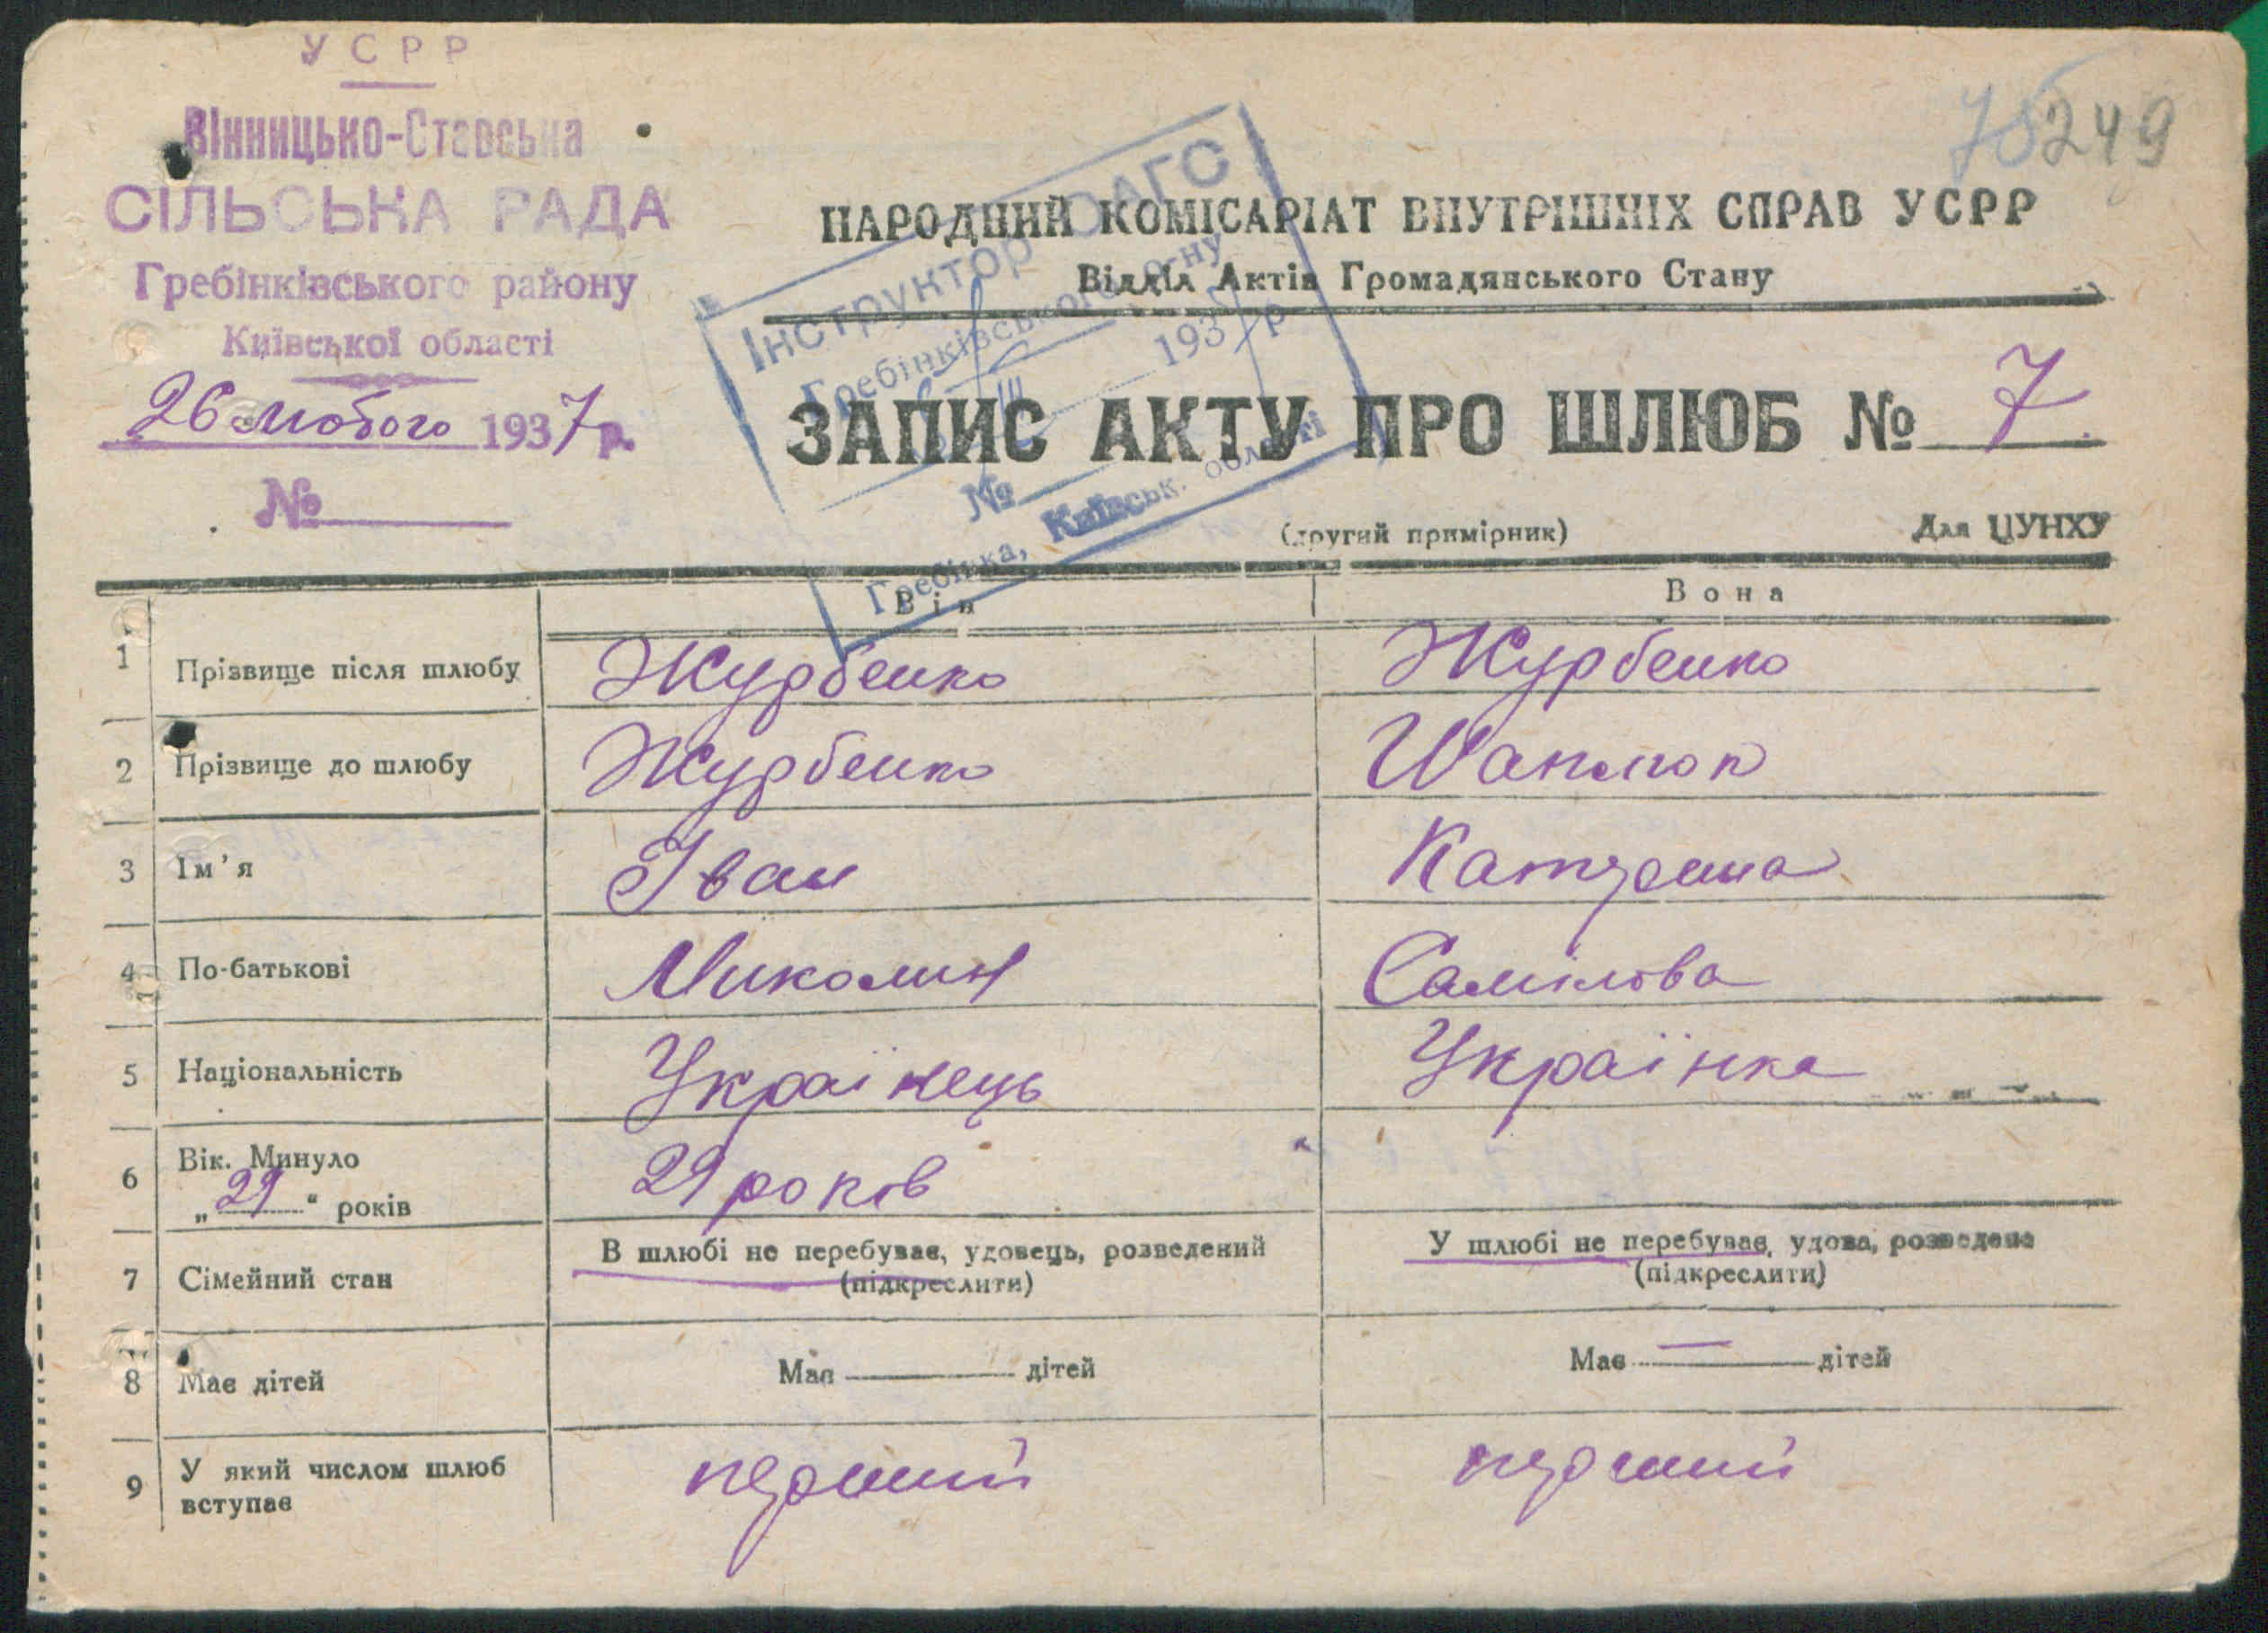 УСРР
Вінницько-Ставська
СІЛЬСЬКА РАДА
Гребінківського району
Київської області
26 лютого 1937 р.
№
249
Інструктор ЗАГС
Гребінківського р-ну
III 1937 р
№
Гребінка, Київськ. області
НАРОДНИЙ КОМІСАРІАТ ВНУТРІШНІХ СПРАВ УСРР
Відділ Актів Громадянського Стану
ЗАПИС АКТУ ПРО ШЛЮБ № 7
(другий примірник) Для ЦУНХУ
Він Вона
1 Прізвище після шлюбу Журбенко Журбенко
2 Прізвище до шлюбу Журбенко
3 Ім'я Іван Катерина
4 По-батькові Миколин Самілова
5 Національність Українець Українка
6 Вік. Минуло
„29“ років 29 років
7 Сімейний стан В шлюбі не перебуває, удовець, розведений У шлюбі не перебуває, удова, розведена
(підкреслити) (підкреслити)
8 Має дітей Має — дітей Має — дітей
9 У який числом шлюб
вступає перший перший